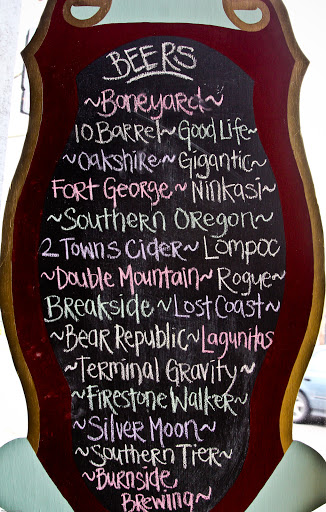 BEERS
~Boneyard~
10 Barrel~Good Life~
~Oakshire~Gigantic~
Fort George~Ninkasi~
~Southern Oregon~
2 Towns Cider~Lompoc
~Double Mountain~Rogue~
Breakside~Lost Coast~
~Bear Republic~Lagunitas
~Terminal Gravity~
~Firestone Walker~
~Silver Moon~
~Southern Tier~
~Burnside
Brewing~